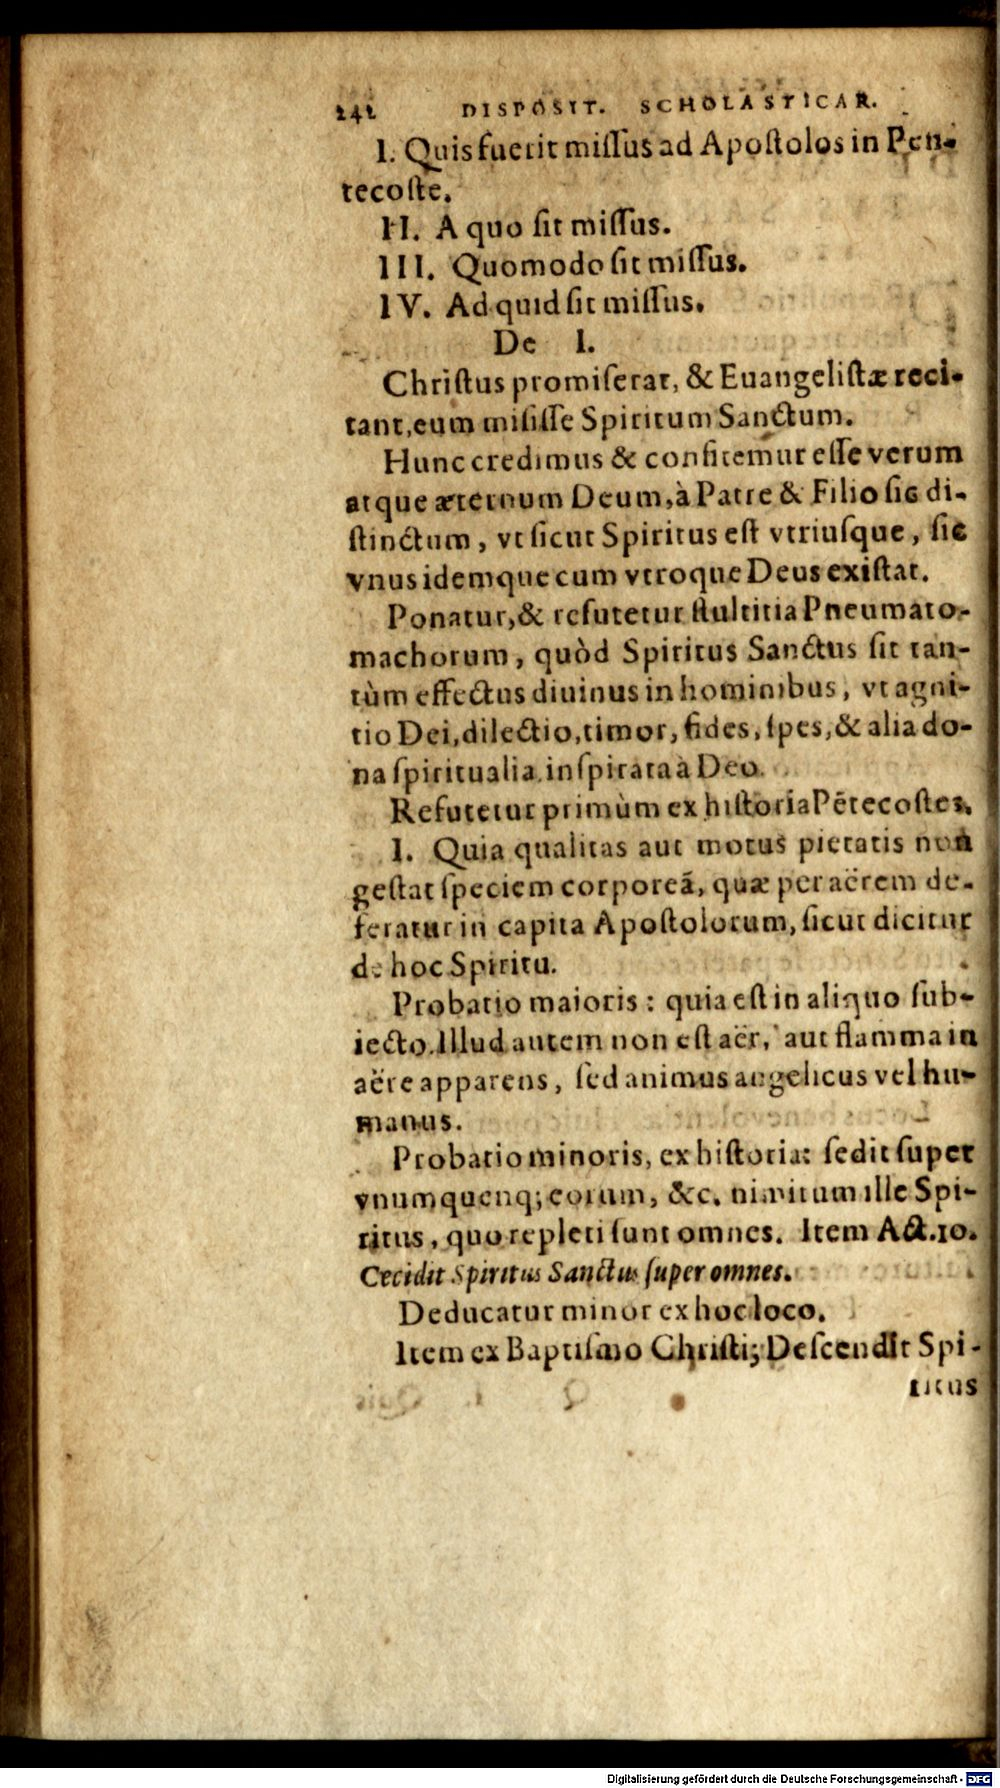 242 DISPOSIT. SCHOLASTICAR.
I. Quis fuerit miſſus ad Apoſtolos in Pen-
tecoſte.
II. A quo ſit miſſus.
III. Quomodo ſit miſſus.
IV. Ad quid ſit miſſus.
De I.
Chriſtus promiſerat, & Euangeliſtæ reci-
tant, eum miſiſſe Spiritum Sanctum.
Hunc credimus & confitemur eſſe verum
atque æternum Deum, à Patre & Filio ſic di-
ſtinctum, vt ſicut Spiritus eſt vtriuſque, ſic
vnus idemque cum vtroque Deus exiſtat.
Ponatur, & refutetur ſtultitia Pneumato-
machorum, quòd Spiritus Sanctus ſit tan-
tùm effectus diuinus in hominibus, vt agni-
tio Dei, dilectio, timor, fides, ſpes, & alia do-
na ſpiritualia inſpirata à Deo.
Refutetur primùm ex hiſtoria Pētecoſtes.
I. Quia qualitas aut motus pietatis non
geſtat ſpeciem corporeā, quæ per aërem de-
feratur in capita Apoſtolorum, ſicut dicitur
de hoc Spiritu.
Probatio maioris: quia eſt in aliquo ſub-
iecto. Illud autem non eſt aër, aut flamma in
aëre apparens, ſed animus angelicus vel hu-
manus.
Probatio minoris, ex hiſtoria: ſedit ſuper
vnumquenq; eorum, &c. nimirum ille Spi-
ritus, quo repleti ſunt omnes. Item Act. 10.
Cecidit Spiritus Sanctus ſuper omnes.
Deducatur minor ex hoc loco.
Item ex Baptiſmo Chriſti; Deſcendit Spi-
ritus
Digitalisierung gefördert durch die Deutsche Forschungsgemeinschaft - DFG